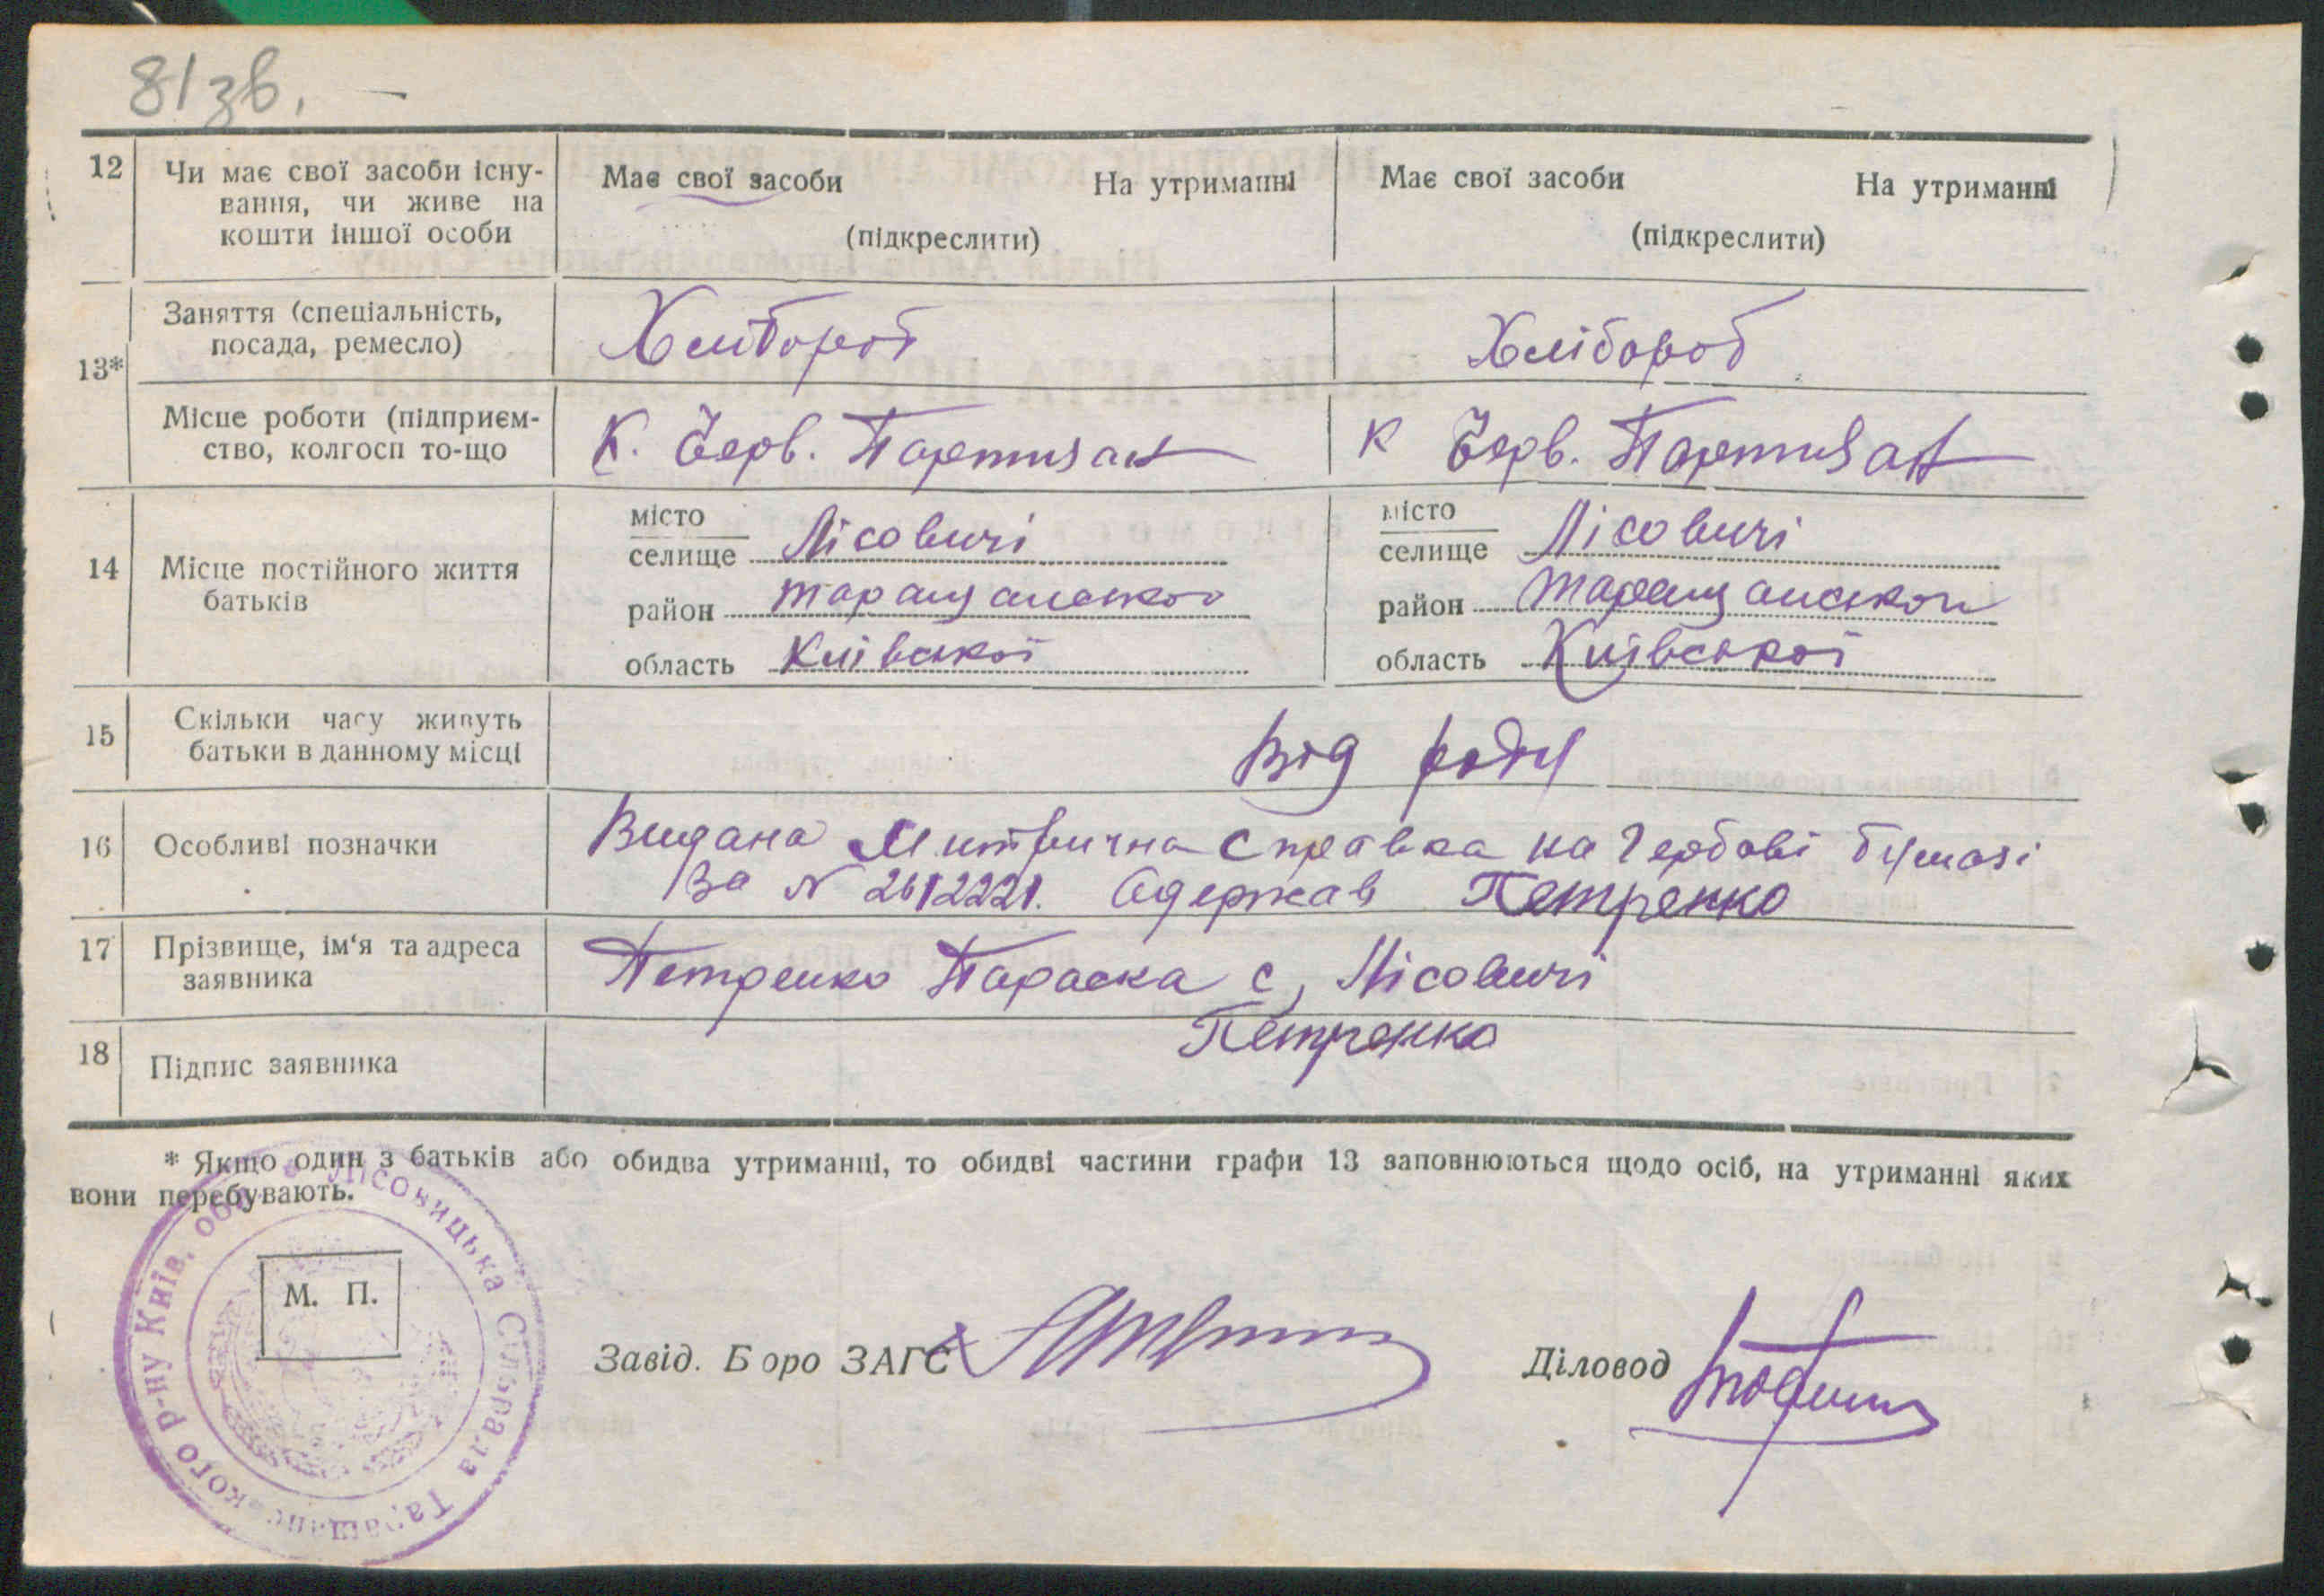 81 зв.
12 Чи має свої засоби існу-
вання, чи живе на
кошти іншої особи
Має свої засоби На утриманні
(підкреслити)
Має свої засоби На утриманні
(підкреслити)
13*
Заняття (спеціальність,
посада, ремесло)
Хлібороб
Хлібороб
Місце роботи (підприєм-
ство, колгосп то-що
К. Черв. Партизан
К Черв. Партизан
14 Місце постійного життя
батьків
місто
селище Лісовичі
район Таращанського
область Київської
місто
селище Лісовичі
район Таращанського
область Київської
15 Скільки часу живуть
батьки в данному місці
Від роду
16 Особливі позначки
Видана Митрична справка на Гербові бумазі
За № 2612221. Одержав Петренко
17 Прізвище, ім'я та адреса
заявника
Петренко Параска с, Лісовичі
18 Підпис заявника
Петренко
* Якщо один з батьків або обидва утриманці, то обидві частини графи 13 заповнюються щодо осіб, на утриманні яких
вони перебувають.
Лісовицька Сільрада Таращанського р-ну Київ. обл.
М. П.
Завід. Б оро ЗАГС
Діловод